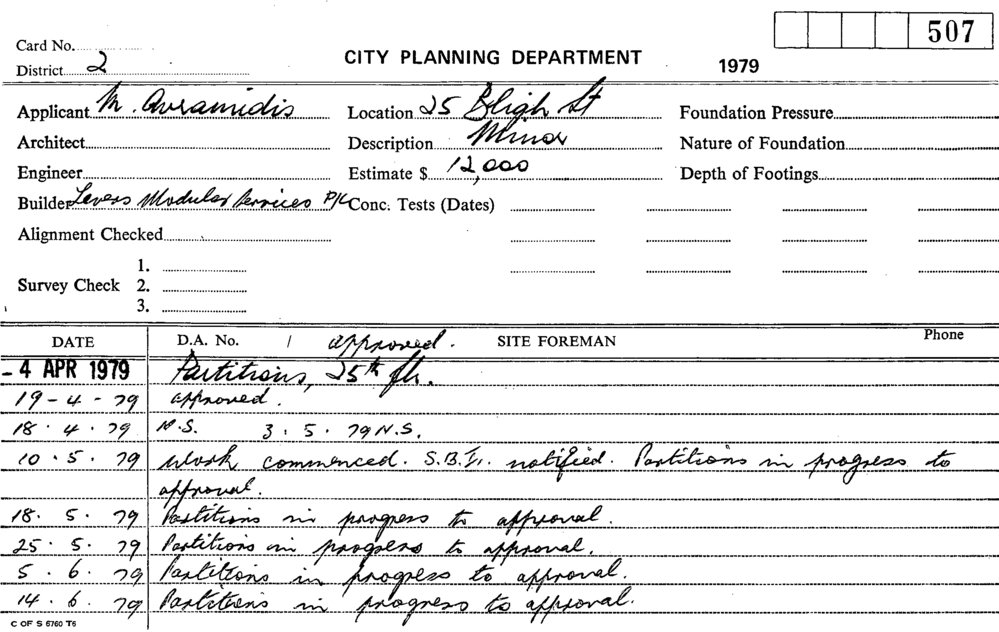 507
Card No.
District 2
CITY PLANNING DEPARTMENT
1979
Applicant M. Avramidis Location 25 Bligh St Foundation Pressure
Architect Description Minor Nature of Foundation
Engineer Estimate $ 12,000 Depth of Footings
Builder Levers Modular Services P/L Conc. Tests (Dates)
Alignment Checked
1.
Survey Check 2.
3.
DATE D.A. No. / approved. SITE FOREMAN Phone
- 4 APR 1979 Partitions, 25th flr.
19-4-79 approved.
18.4.79 N.S. 3.5.79 N.S.
10.5.79 Work commenced. notified. Partitions in progress to
approval.
18.5.79 Partitions in progress to approval.
25.5.79 Partitions in progress to approval.
5.6.79 Partitions in progress to approval.
14.6.79 Partitions in progress to approval.
C OF S 6760 T6